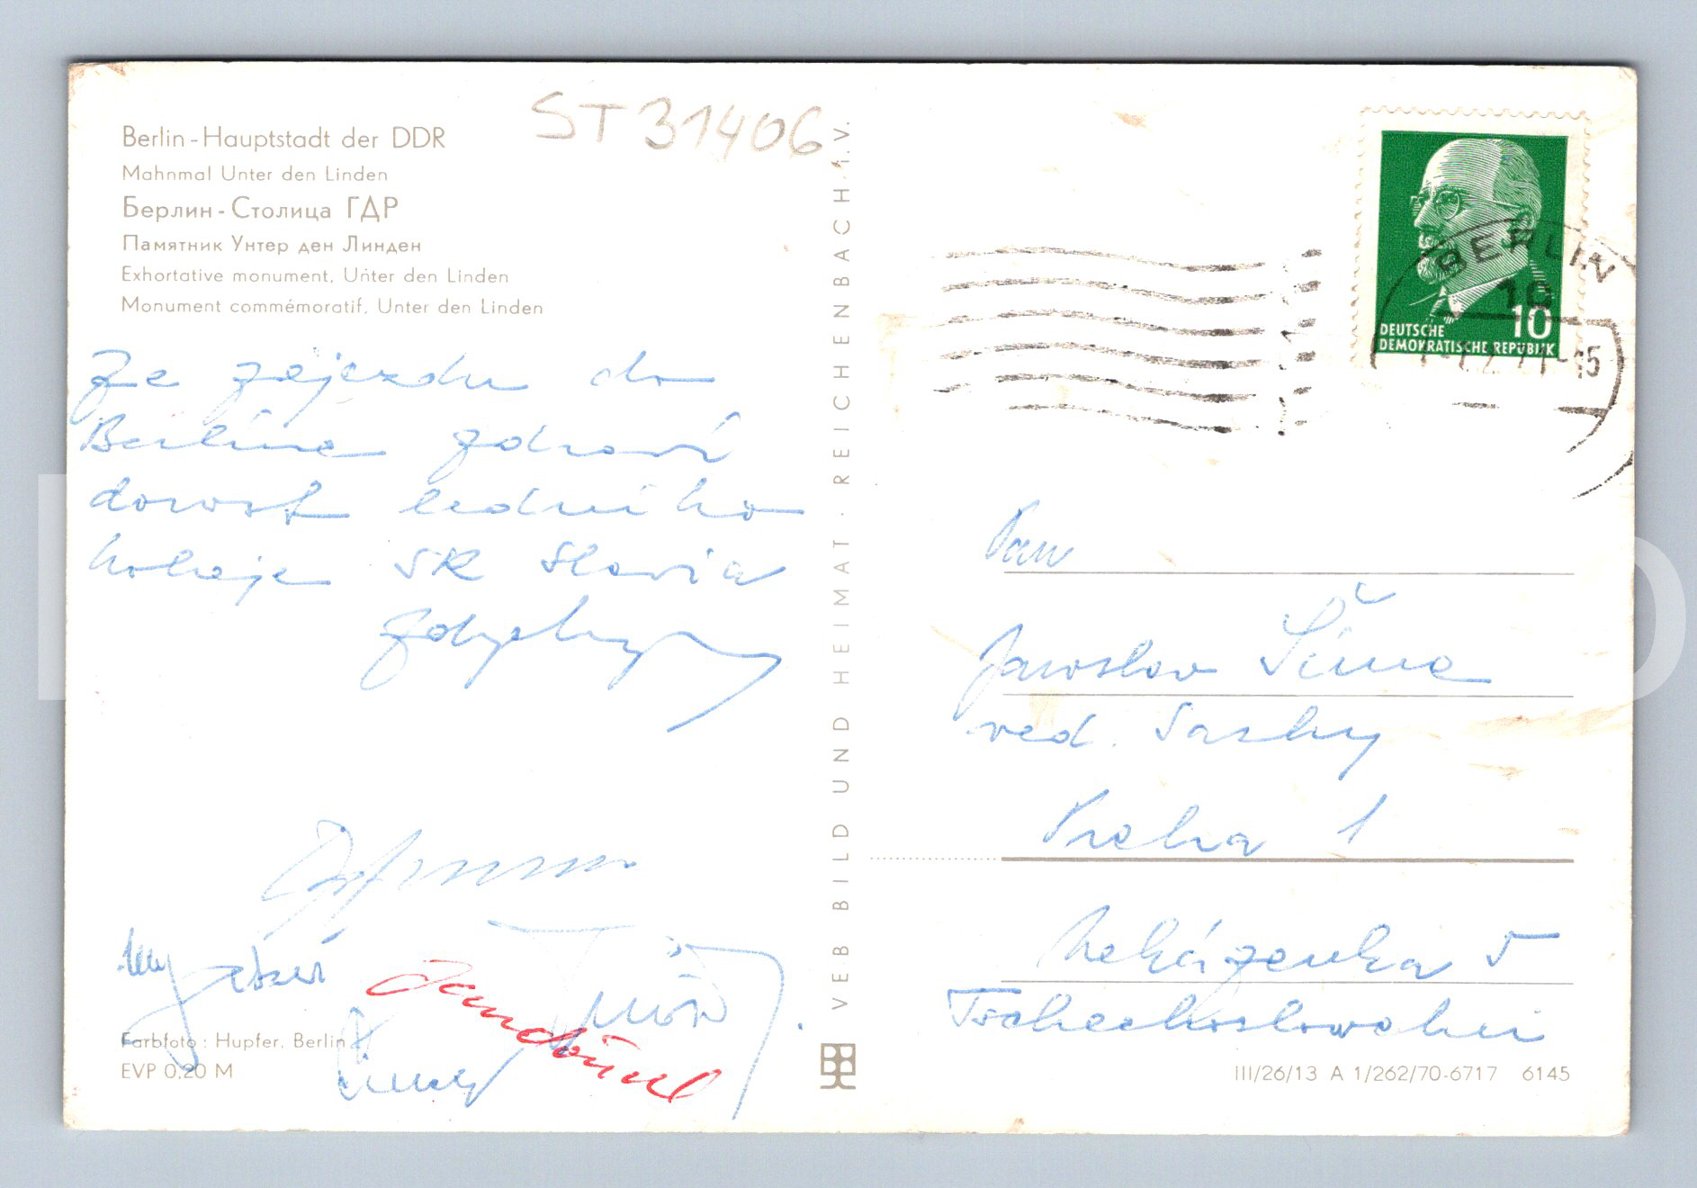 ST 31406
Berlin - Hauptstadt der DDR
Mahnmal Unter den Linden
Берлин - Столица ГДР
Памятник Унтер ден Линден
Exhortative monument, Unter den Linden
Monument commémoratif, Unter den Linden
Ze zájezdu do
Berlína zdraví
dorost ledního
hokeje SK Slavia
Farbfoto: Hupfer, Berlin
EVP 0,20 M
VEB BILD UND HEIMAT · REICHENBACH i. V.
BERLIN
10
DEUTSCHE
DEMOKRATISCHE REPUBLIK
10
Pan
Jaroslav Šíma
red.
Praha 1
Nekázanka 5
Tschechoslowakei
III/26/13 A 1/262/70-6717 6145